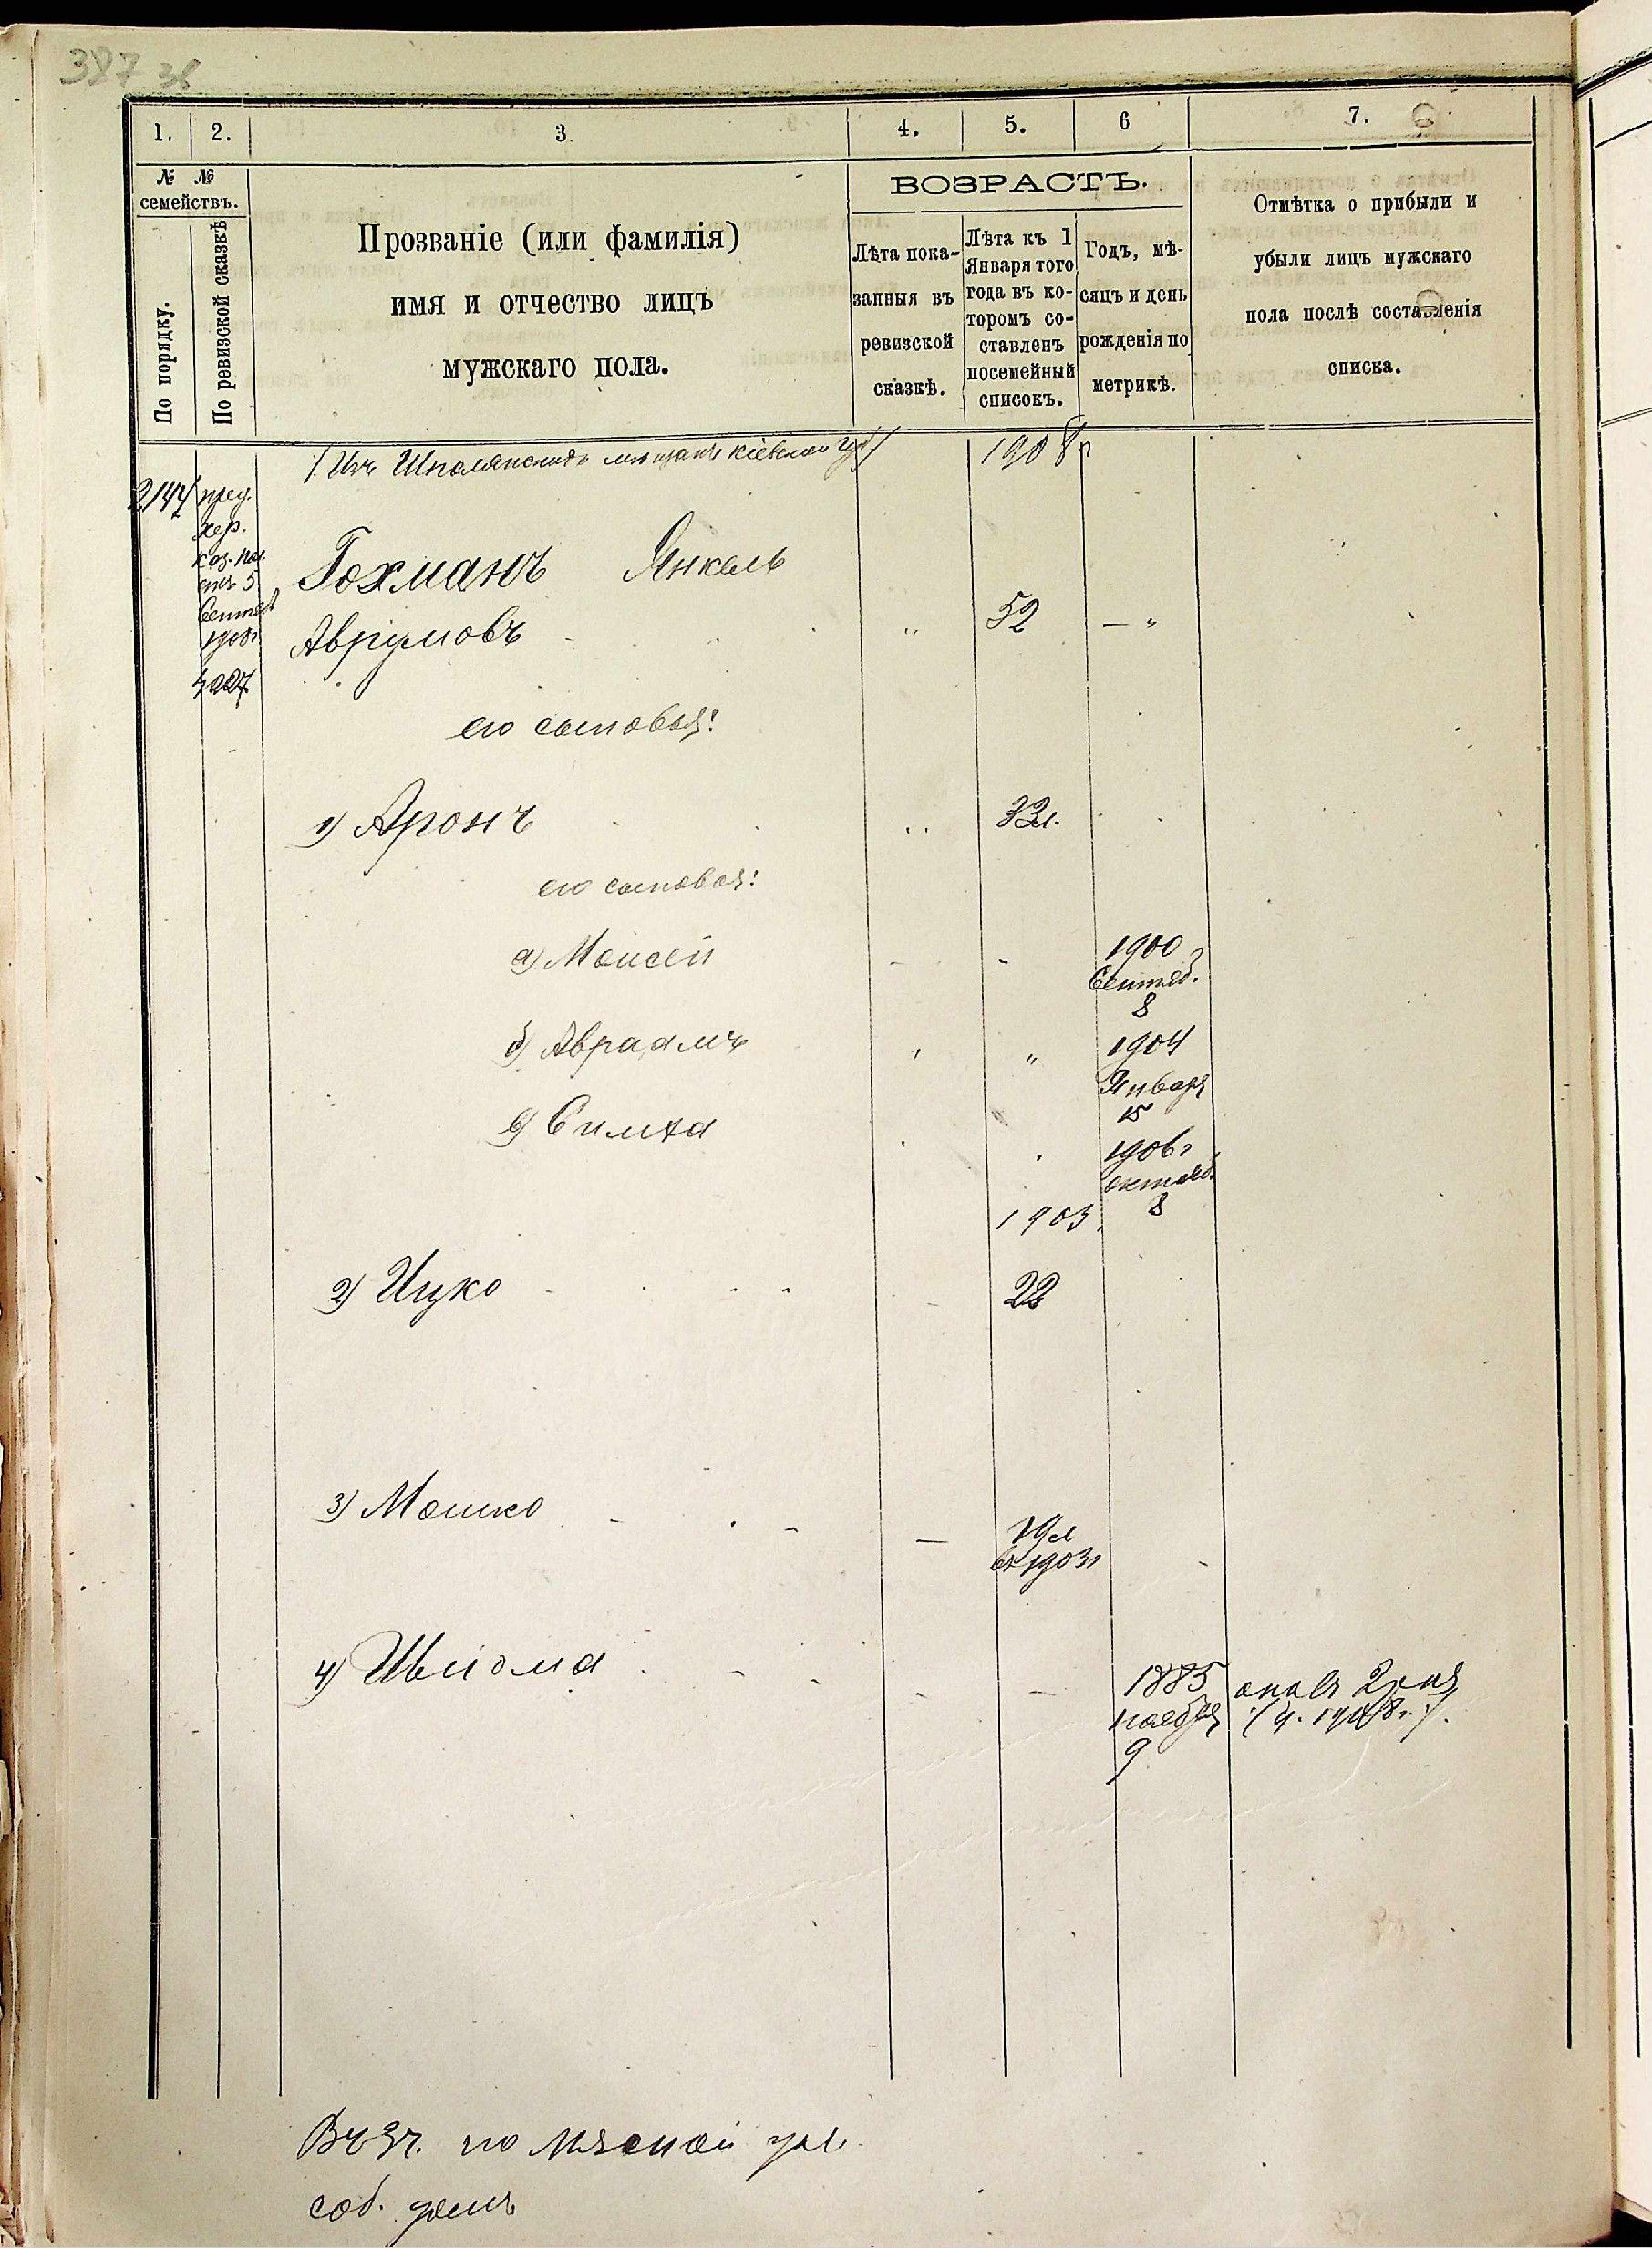 387 38
1. 2. 3. 4. 5. 6 7. 6
№ № семействъ.
По порядку.
По ревизской сказкѣ
Прозваніе (или фамилія)
имя и отчество лицъ
мужскаго пола.
ВОЗРАСТЪ.
Лѣта пока-
занныя въ
ревизской
сказкѣ.
Лѣта къ 1
Января того
года въ ко-
торомъ со-
ставленъ
посемейный
списокъ.
Годъ, мѣ-
сяцъ и день
рожденія по
метрикѣ.
Отмѣтка о прибыли и
убыли лицъ мужскаго
пола послѣ составленія
списка.
(Изъ Шполянскихъ мѣщанъ Кіевской губ) 1908г
2144 пред.
хер.
каз. пал.
отъ 5
Сентяб
1908г.
Гохманъ Янкель
Аврумовъ " 52 — "
его сыновья:
1) Аронъ 32л.
его сыновья:
а) Моисей 1900
Сентяб.
8
б) Авраамъ " 1904
Января
15
в) Симха 1906г
октяб.
8
1903.
2) Ицко 22
3) Мошко — 19л
въ 1903г
4) Шліома — 1885
ноября
9
(ч. 1908г.).
по Мясной ул.
соб. домъ